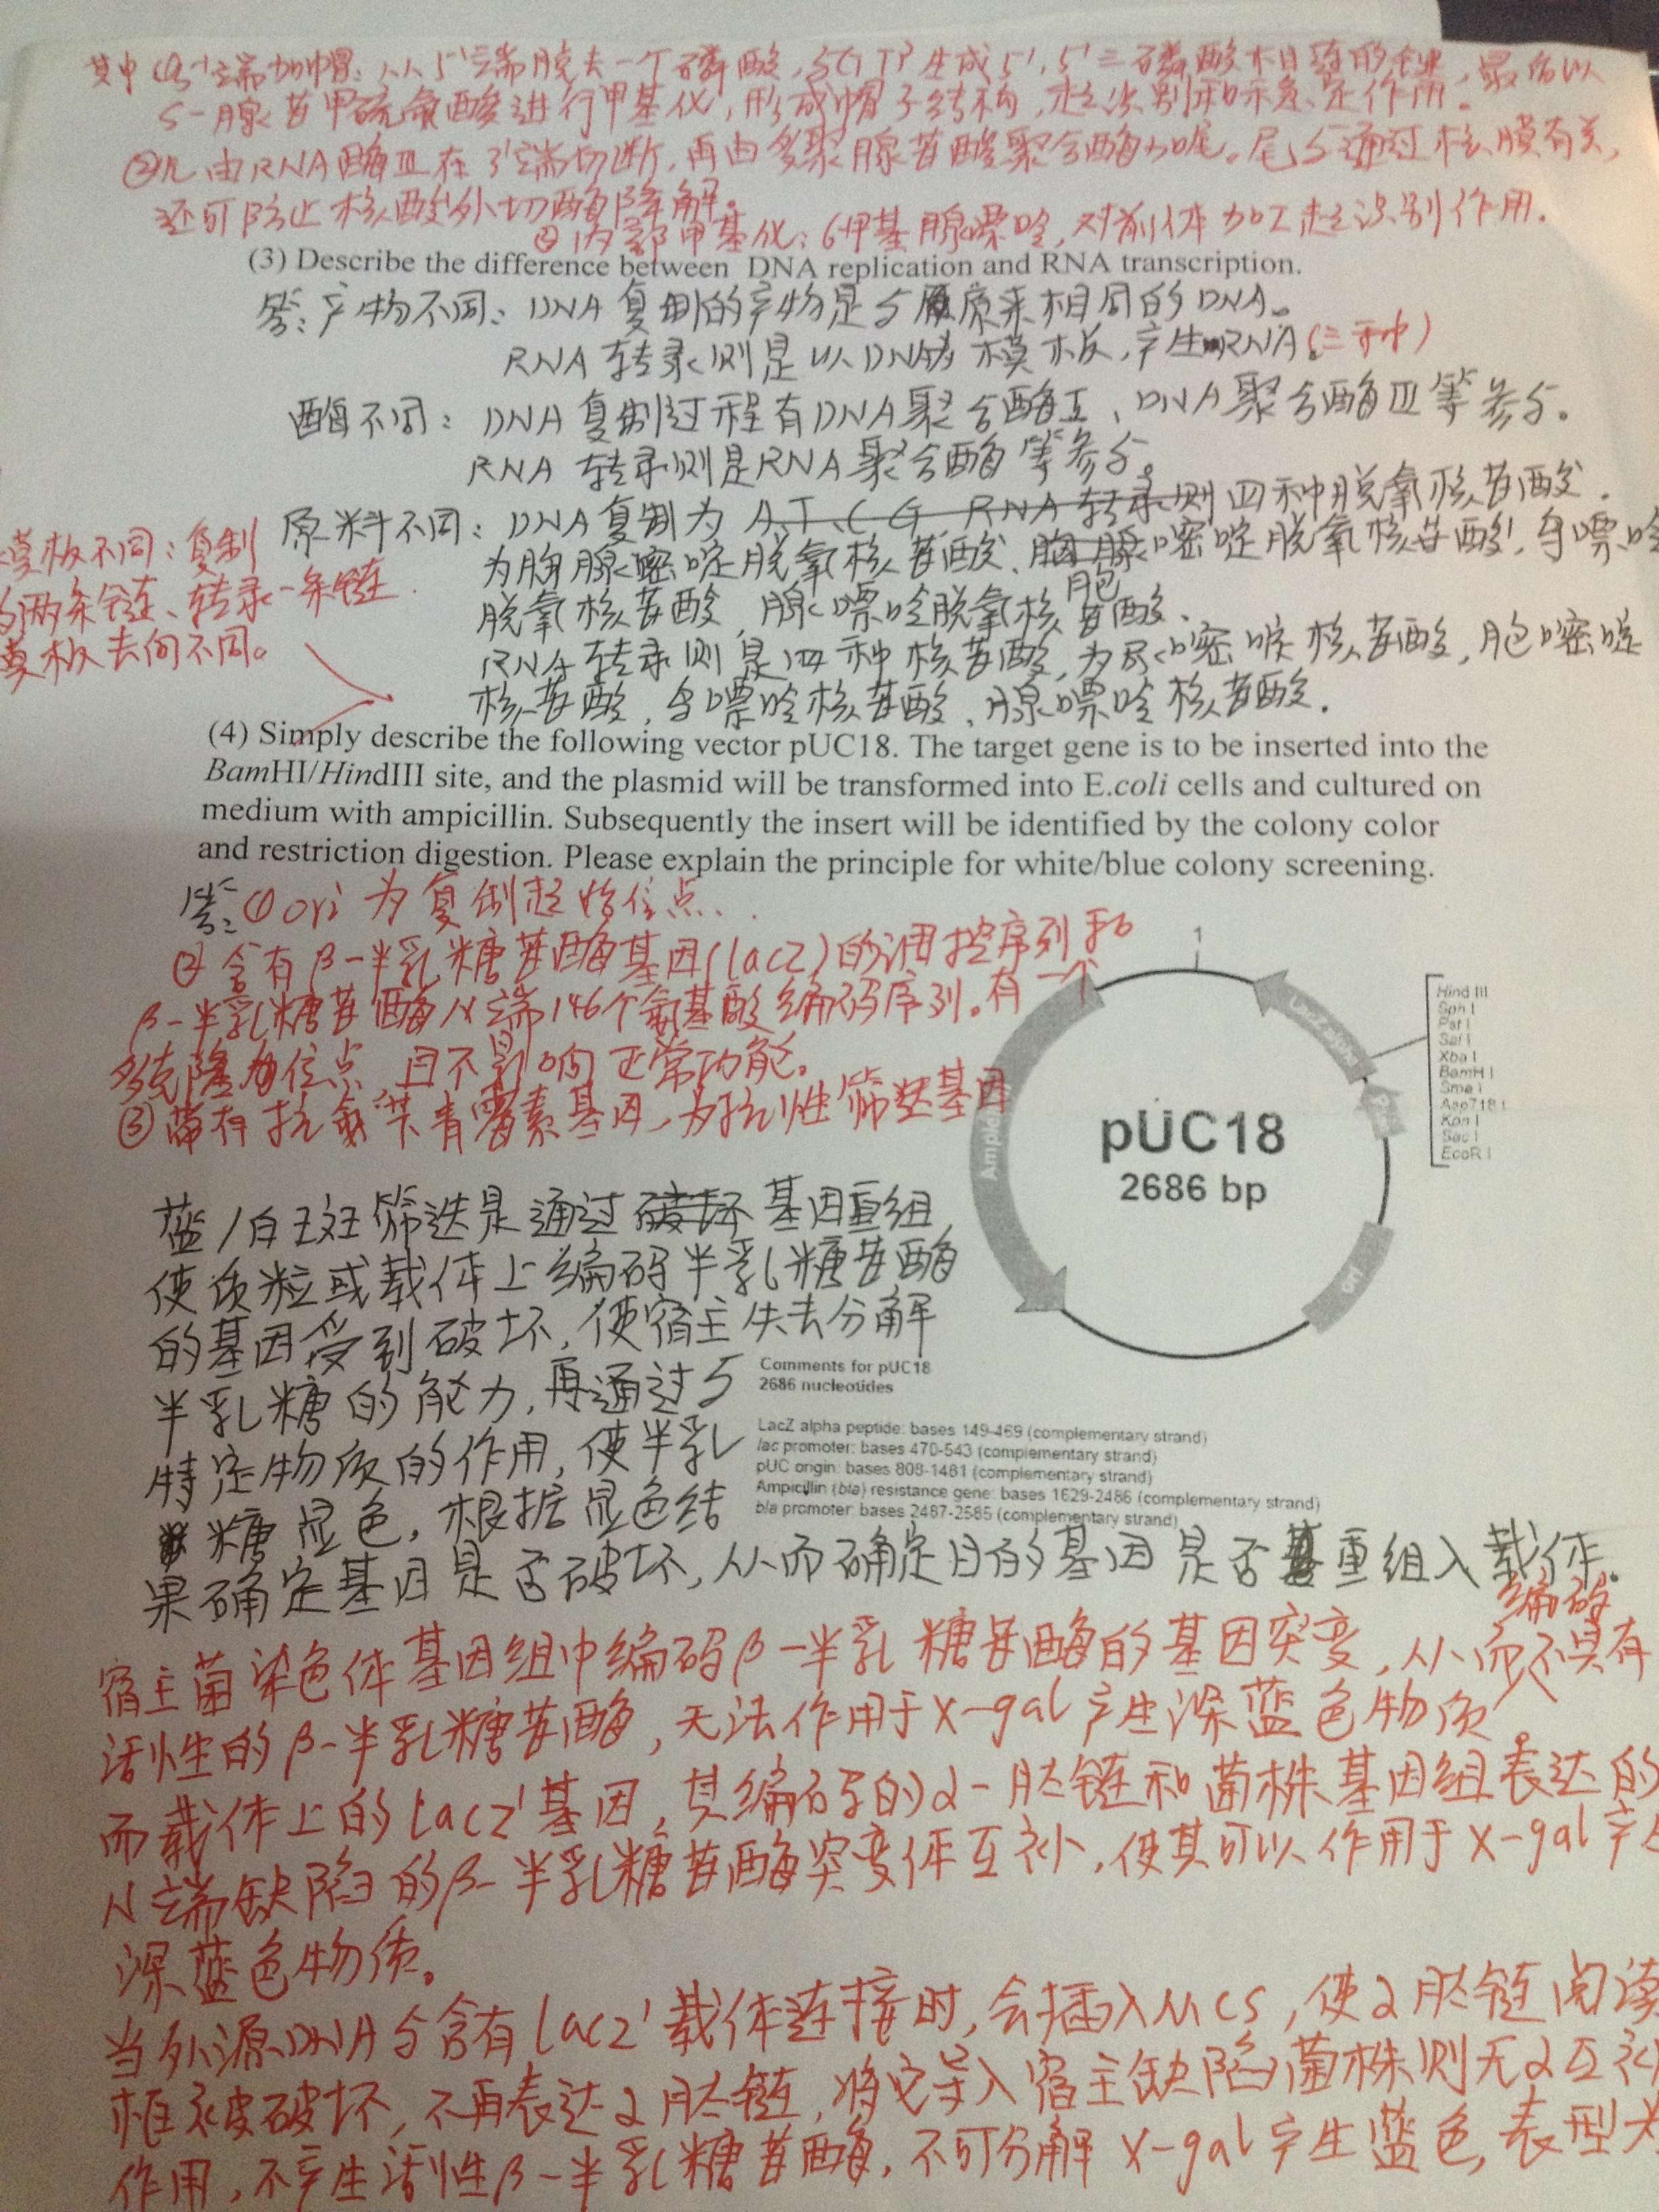 其中①5'端加帽:从5'端脱去一个磷酸,与GTP生成5',5'三磷酸相连的键,最后以
S-腺苷甲硫氨酸进行甲基化,形成帽子结构,起识别和稳定作用。
②尾由RNA酶III在3'端切断,再由多聚腺苷酸聚合酶加尾。尾与通过核膜有关,
还可防止核酸外切酶降解。
③内部甲基化:6甲基腺嘌呤,对前体加工起识别作用.
(3) Describe the difference between DNA replication and RNA transcription.
答:产物不同:DNA复制的产物是与原来相同的DNA。
RNA转录则是以DNA为模板,产生RNA。(三种)
酶不同:DNA复制过程有DNA聚合酶I、DNA聚合酶III等参与。
RNA转录则是RNA聚合酶等参与。
原料不同:DNA复制为 A.T.C G RNA转录则 四种脱氧核苷酸.
为胸腺嘧啶脱氧核苷酸、胞嘧啶脱氧核苷酸,鸟嘌呤
脱氧核苷酸,腺嘌呤脱氧核苷酸.
RNA转录则是四种核苷酸,为尿嘧啶核苷酸,胞嘧啶
核苷酸,鸟嘌呤核苷酸、腺嘌呤核苷酸.
模板不同:复制
的两条链、转录一条链.
模板去向不同。
(4) Simply describe the following vector pUC18. The target gene is to be inserted into the
BamHI/HindIII site, and the plasmid will be transformed into E.coli cells and cultured on
medium with ampicillin. Subsequently the insert will be identified by the colony color
and restriction digestion. Please explain the principle for white/blue colony screening.
答:①ori为复制起始位点.
②含有β-半乳糖苷酶基因(lacZ)的调控序列和
β-半乳糖苷酶N端146个氨基酸编码序列。有一个
多克隆位点,且不影响正常功能。
③带有抗氨苄青霉素基因,为抗性筛选基因
蓝/白斑筛选是通过破坏基因重组,
使质粒或载体上编码半乳糖苷酶
的基因受到破坏,使宿主失去分解
半乳糖的能力,再通过与
特定物质的作用,使半乳
糖显色,根据显色结
果确定基因是否破坏,从而确定目的基因是否重组入载体。
1
LacZ alpha
Hind III
Sph I
Pst I
Sal I
Xba I
BamH I
Sma I
Asp718 I
Kpn I
Sac I
EcoR I
pUC18
2686 bp
ori
Comments for pUC18
2686 nucleotides
LacZ alpha peptide: bases 149-469 (complementary strand)
lac promoter: bases 470-543 (complementary strand)
pUC origin: bases 808-1481 (complementary strand)
Ampicillin (bla) resistance gene: bases 1629-2486 (complementary strand)
bla promoter: bases 2487-2585 (complementary strand)
编码
宿主菌染色体基因组中编码β-半乳糖苷酶的基因突变,从而不具有
活性的β-半乳糖苷酶,无法作用于X-gal产生深蓝色物质。
而载体上的lacZ'基因,其编码的α-肽链和菌株基因组表达的
N端缺陷的β-半乳糖苷酶突变体互补,使其可以作用于X-gal产生
深蓝色物质。
当外源DNA与含有lacZ'载体连接时,会插入MCS,使α肽链阅读
框被破坏,不再表达α肽链,将它导入宿主缺陷菌株则无α互补
作用,不产生活性β-半乳糖苷酶,不可分解X-gal产生蓝色,表型为